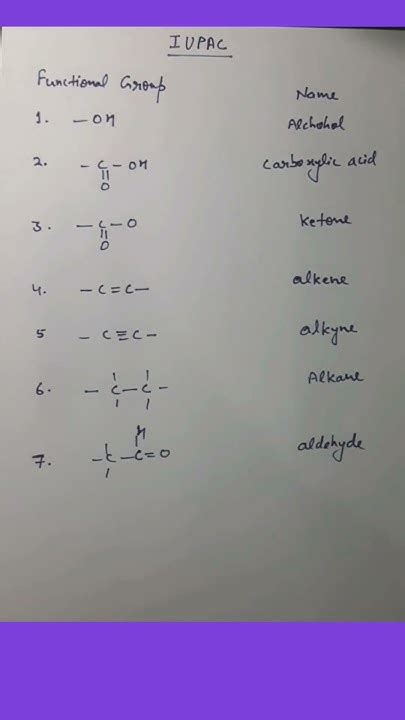 IUPAC
Functional Group Name
1. –OH Alchohol
2. –C–OH Carboxylic acid
||
O
3. –C–O Ketone
||
O
4. –C=C– alkene
5 –C≡C– alkyne
6. –C–C– Alkane
H
7. –C–C=O aldehyde